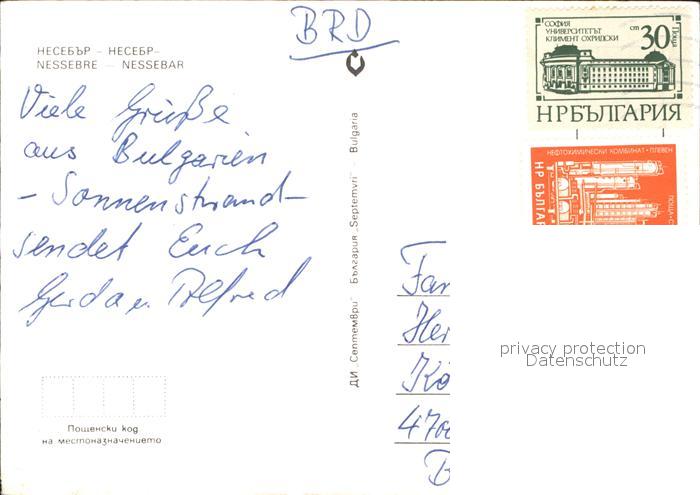 BRD
НЕСЕБЪР – НЕСЕБР–
NESSEBRE – NESSEBAR
Viele Grüße
aus Bulgarien
– Sonnenstrand –
sendet Euch
Gerda u. Alfred
Пощенски код
на местоназначението
ДИ „Септември" България „Septemvri" – Bulgaria
СОФИЯ
УНИВЕРСИТЕТЪТ
КЛИМЕНТ ОХРИДСКИ
ст 30 Поща
НРБЪЛГАРИЯ
НЕФТОХИМИЧЕСКИ КОМБИНАТ · ПЛЕВЕН
НР БЪЛГАР
ПОЩА
Fam
Her
Kö
470
B
privacy protection
Datenschutz